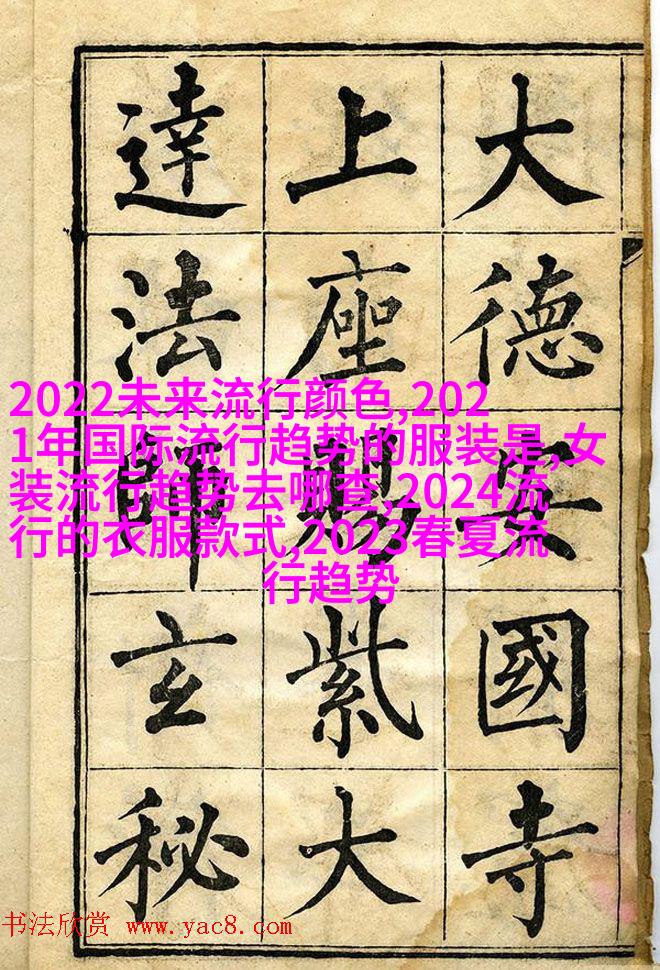 大德安國寺
上座賜紫大
達法師玄秘
2022未来流行颜色,202
1年国际流行趋势的服装是,女
装流行趋势去哪查,2024流
行的衣服款式,2023春夏流
行趋势
书法欣赏 www.yac8.com